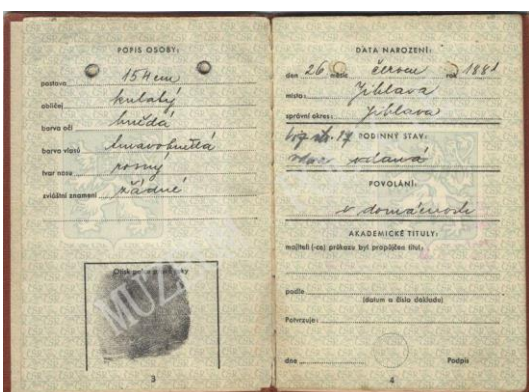 POPIS OSOBY:
postava 154 cm
obličej kulatý
barva očí hnědá
barva vlasů tmavohnědá
tvar nosu rovný
zvláštní znamení žádné
Otisk
MUZEUM
3
DATA NAROZENÍ:
den 26 měsíc červen rok 188
místo: Jihlava
správní okres: Jihlava
RODINNÝ STAV:
vdaná
POVOLÁNÍ:
v domácnosti
AKADEMICKÉ TITULY:
majiteli (-ce) průkazu byl propůjčen titul:
podle
(datum a číslo dokladu)
Potvrzuje:
dne Podpis
4